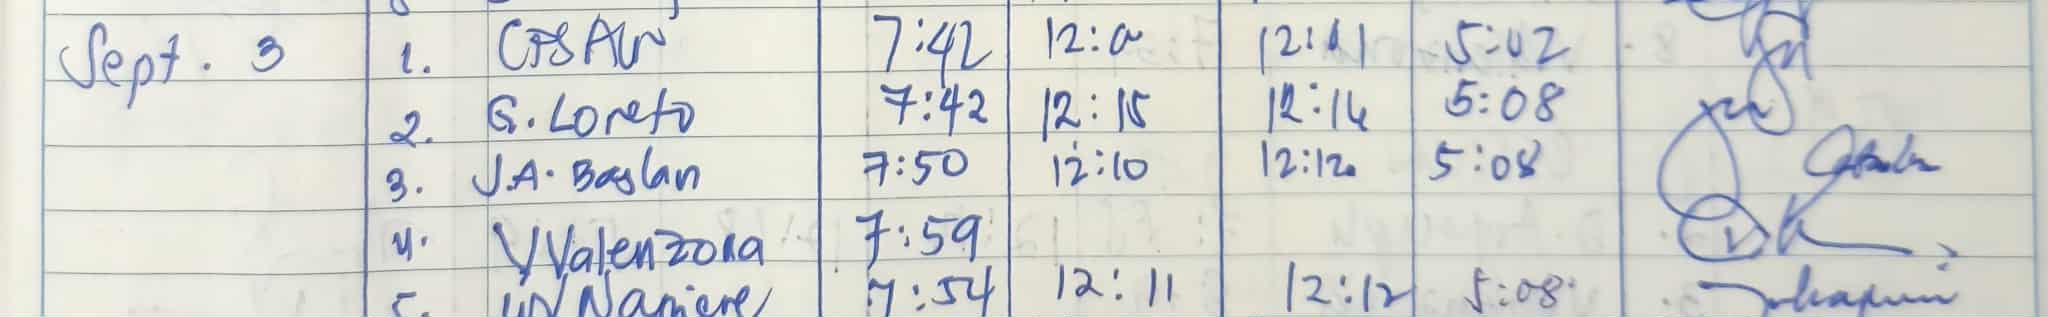 Sept. 3 1. 7:42 12:11 5:02
2. G. Loreto 7:42 12:15 12:16 5:08
3. J.A. Baslan 7:50 12:10 12:12 5:08
4. V Valenzona 7:59
5. 7:54 12:11 12:12 5:08